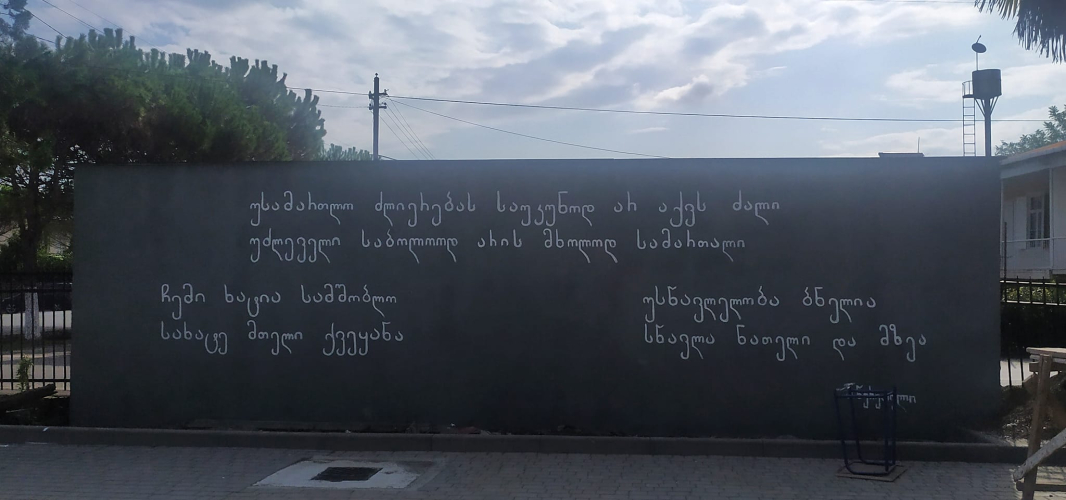 უსამართლო ძლიერებას საუკუნოდ არ აქვს ძალი
უძლეველი საბოლოოდ არის მხოლოდ სამართალი
ჩემი ხატია სამშობლო
სახატე მთელი ქვეყანა
უსწავლელობა ბნელია
სწავლა ნათელი და მზეა